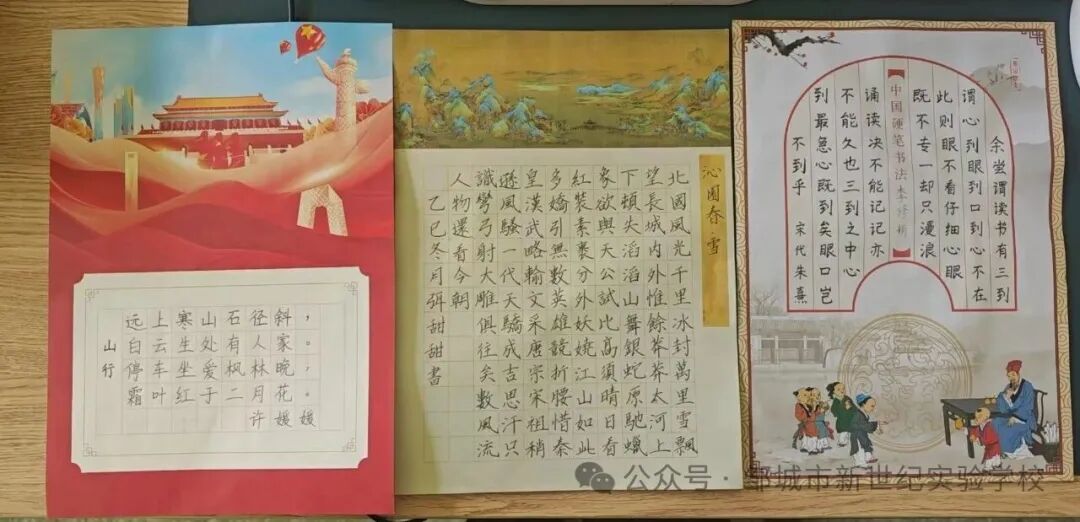 山行
远上寒山石径斜，
白云生处有人家。
停车坐爱枫林晚，
霜叶红于二月花。
许媛媛
沁園春·雪
北國風光千里冰封萬里雪飄
望長城内外惟餘莽莽太河上
下頓失滔滔山舞銀蛇原馳蠟
象欲與天公試比高須晴日看
紅裝素裹分外妖嬈江山如此
多嬌引無數英雄競折腰惜秦
皇漢武略輸文采唐宗宋祖稍
遜風騷一代天驕成吉思汗只
識彎弓射大雕俱往矣數風流
人物還看今朝
乙巳冬月弭甜甜書
余尝谓读书有三到
谓心到眼到口到心不在
此则眼不看仔细心眼
既不专一却只漫浪
中国硬笔书法
诵读决不能记记亦
不能久也三到之中心
到最急心既到矣眼口岂
不到乎 宋代朱熹
公众号·邹城市新世纪实验学校